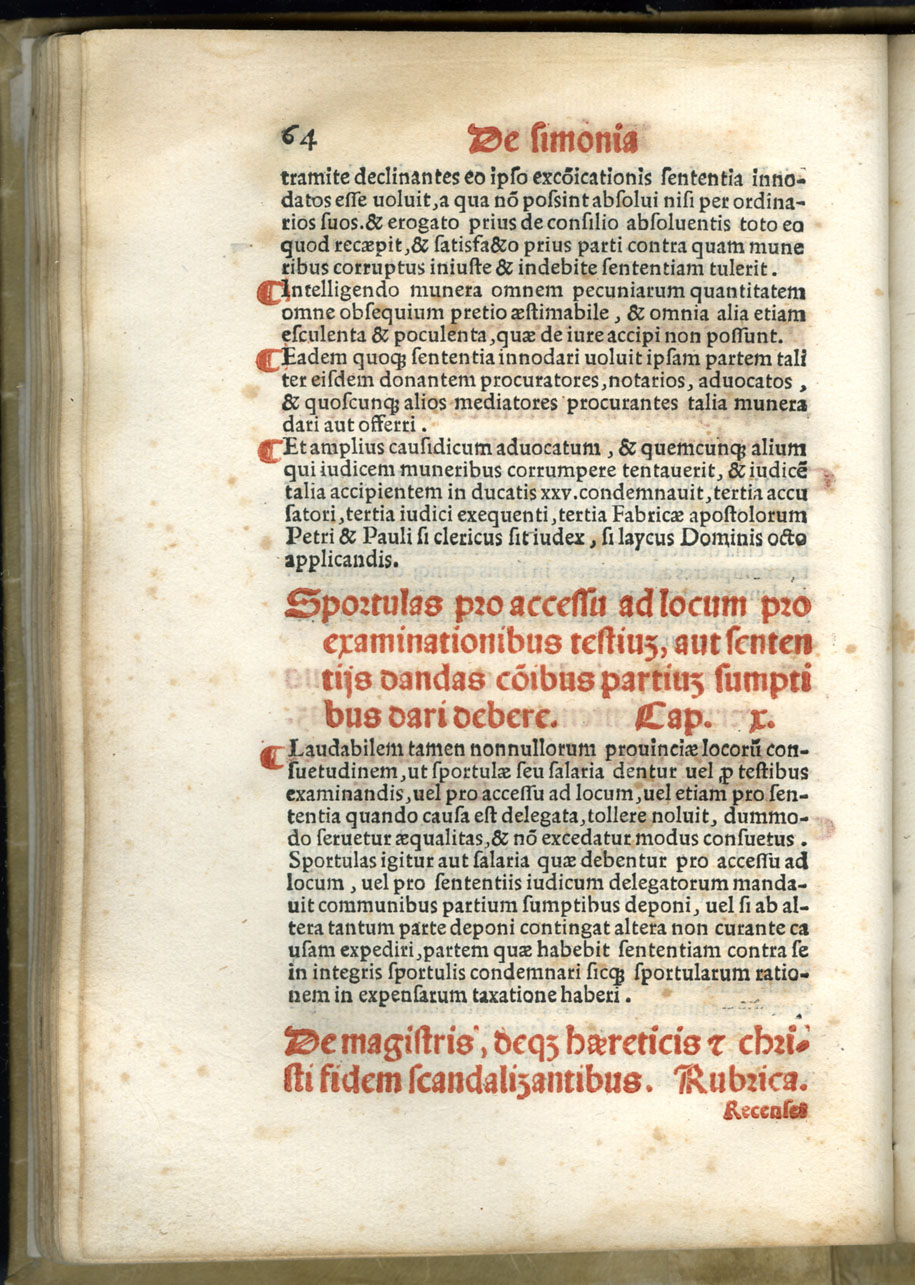 64 De simonia
tramite declinantes eo ipso excõicationis sententia inno-
datos esse uoluit, a qua nõ possint absolui nisi per ordina-
rios suos. & erogato prius de consilio absoluentis toto eo
quod recæpit, & satisfa&o prius parti contra quam mune
ribus corruptus iniuste & indebite sententiam tulerit.
¶ Intelligendo munera omnem pecuniarum quantitatem
omne obsequium pretio æstimabile, & omnia alia etiam
esculenta & poculenta, quæ de iure accipi non possunt.
¶ Eadem quoqꝫ sententia innodari uoluit ipsam partem tali
ter eisdem donantem procuratores, notarios, aduocatos,
& quoscunqꝫ alios mediatores procurantes talia munera
dari aut offerri.
¶ Et amplius causidicum aduocatum, & quemcunqꝫ alium
qui iudicem muneribus corrumpere tentauerit, & iudicẽ
talia accipientem in ducatis xxv. condemnauit, tertia accu
satori, tertia iudici exequenti, tertia Fabricæ apostolorum
Petri & Pauli si clericus sit iudex, si laycus Dominis octo
applicandis.
Sportulas pro accessu ad locum pro
examinationibus testiuꝫ, aut senten
tijs dandas cõibus partiuꝫ sumpti
bus dari debere. Cap. x.
¶ Laudabilem tamen nonnullorum prouinciæ locorũ con-
suetudinem, ut sportulæ seu salaria dentur uel ꝓ testibus
examinandis, uel pro accessu ad locum, uel etiam pro sen-
tentia quando causa est delegata, tollere noluit, dummo-
do seruetur æqualitas, & nõ excedatur modus consuetus.
Sportulas igitur aut salaria quæ debentur pro accessu ad
locum, uel pro sententiis iudicum delegatorum manda-
uit communibus partium sumptibus deponi, uel si ab al-
tera tantum parte deponi contingat altera non curante ca
usam expediri, partem quæ habebit sententiam contra se
in integris sportulis condemnari sicqꝫ sportularum ratio-
nem in expensarum taxatione haberi.
De magistris, deqꝫ hæreticis ⁊ chri-
sti fidem scandaliꝫantibus. Rubrica.
Recenses